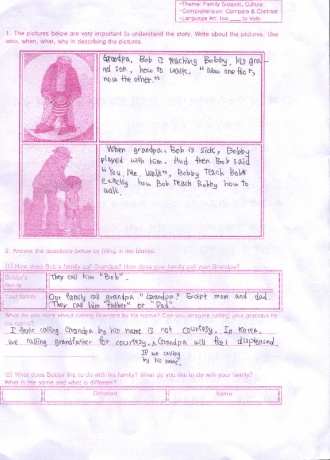 ~Theme: Family Support, Culture
~Comprehension: Compare & Contrast
~Language Art: too ___ to Verb
1. The pictures below are very important to understand the story. Write about the pictures. Use
who, when, what, why in describing the pictures.
Grandpa, Bob is teaching Bobby, his gra-
nd son, how to walk. "Now one foot,
now the other."
When grandpa, Bob is sick, Bobby
played with him. And then Bob said
Bobby Teach Bob
Exactly how Bob Teach Bobby how to
walk.
2. Answer the questions below by filling in the blanks.
(1) How does Bob's family call Grandpa? How does your family call your Grandpa?
Bobby's
family
They call him "Bob".
Your family
Our family call grandpa "Grandpa." Except mom and dad
They call him "Father" or "Dad"
What do you think about calling Grandpa by his name? Can you imagine calling your grandpa by
his name?
I think calling Grandpa by his name is not courtesy. In Korea,
we calling grandfather for courtesy. Grandpa will feel displeased.
If we calling
by his name.
(2) What does Bobby like to do with his family? What do you like to do with your family?
What is the same and what is different?
Different
Same